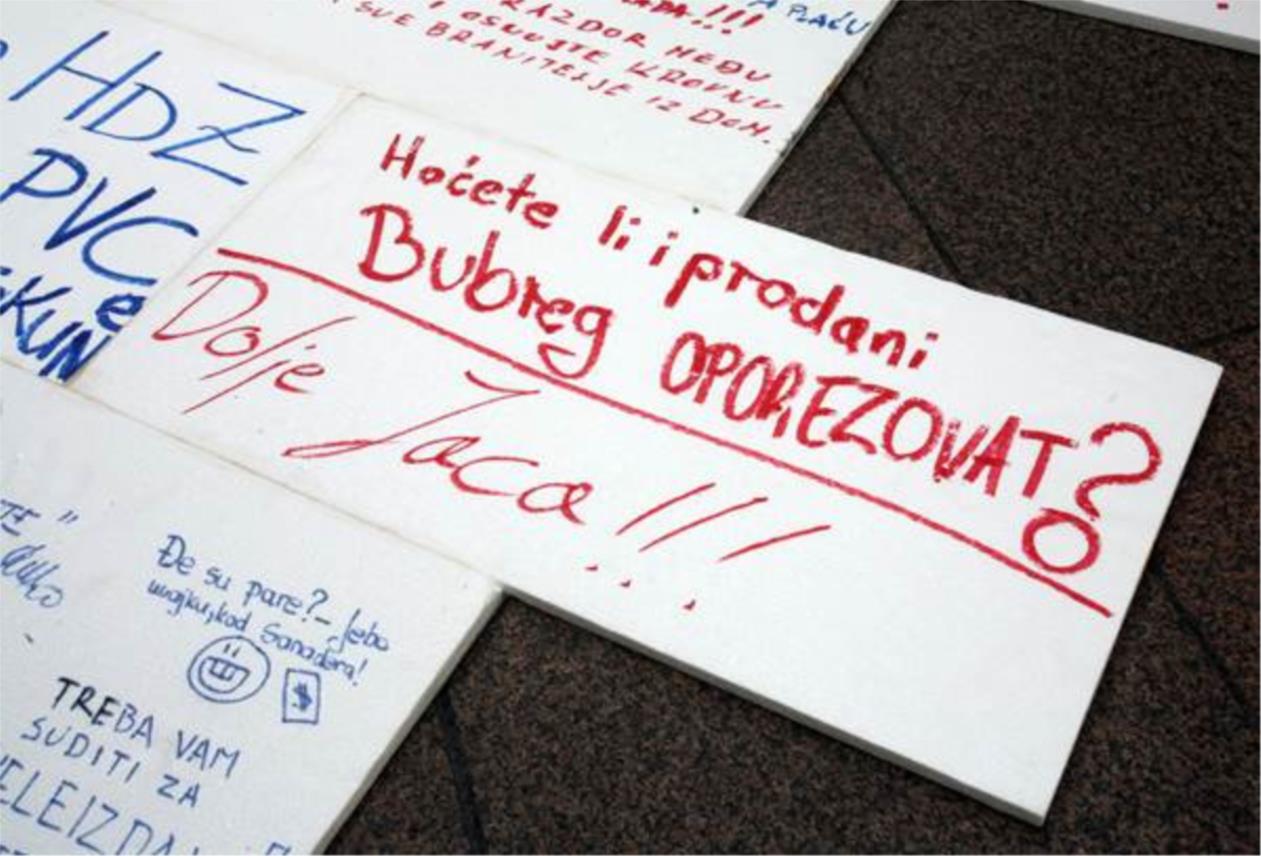 A PLAĆU
RAZDOR MEĐU
OSNUJTE KROVNU
SVE BRANITELJE IZ DOM.
HDZ
PVC
e
Hoćete li i prodani
Bubreg OPOREZOVAT?
Dolje Jaca!!!
Đe su pare?- Jebo
majku, kod Sanadera!
$
TREBA VAM
SUDITI ZA